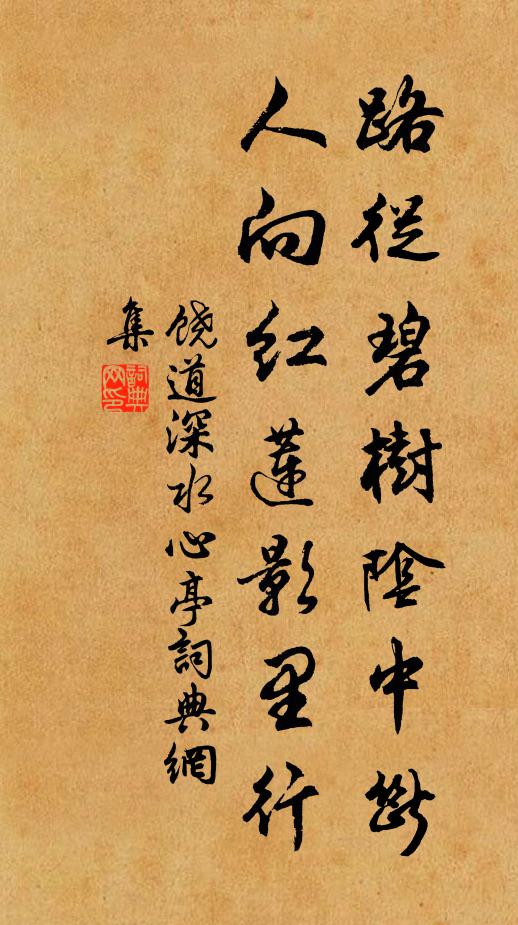 路從碧樹陰中斷
人向红蓮影里行
饶道深水心亭詞典網
集
詞典
网印